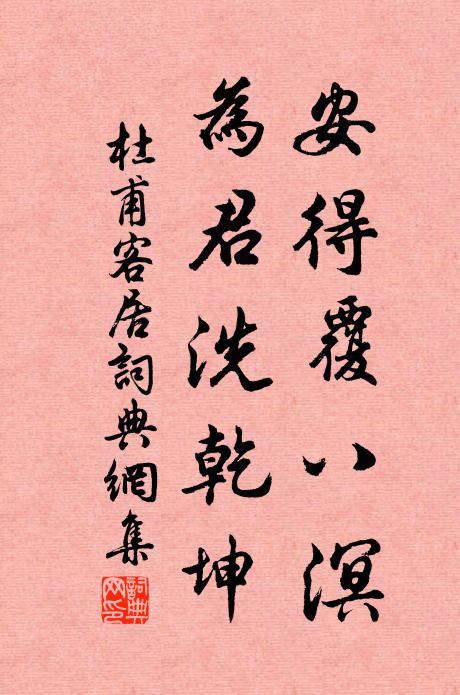 安得覆八溟
為君洗乾坤
杜甫客居詞典網集
詞典网印